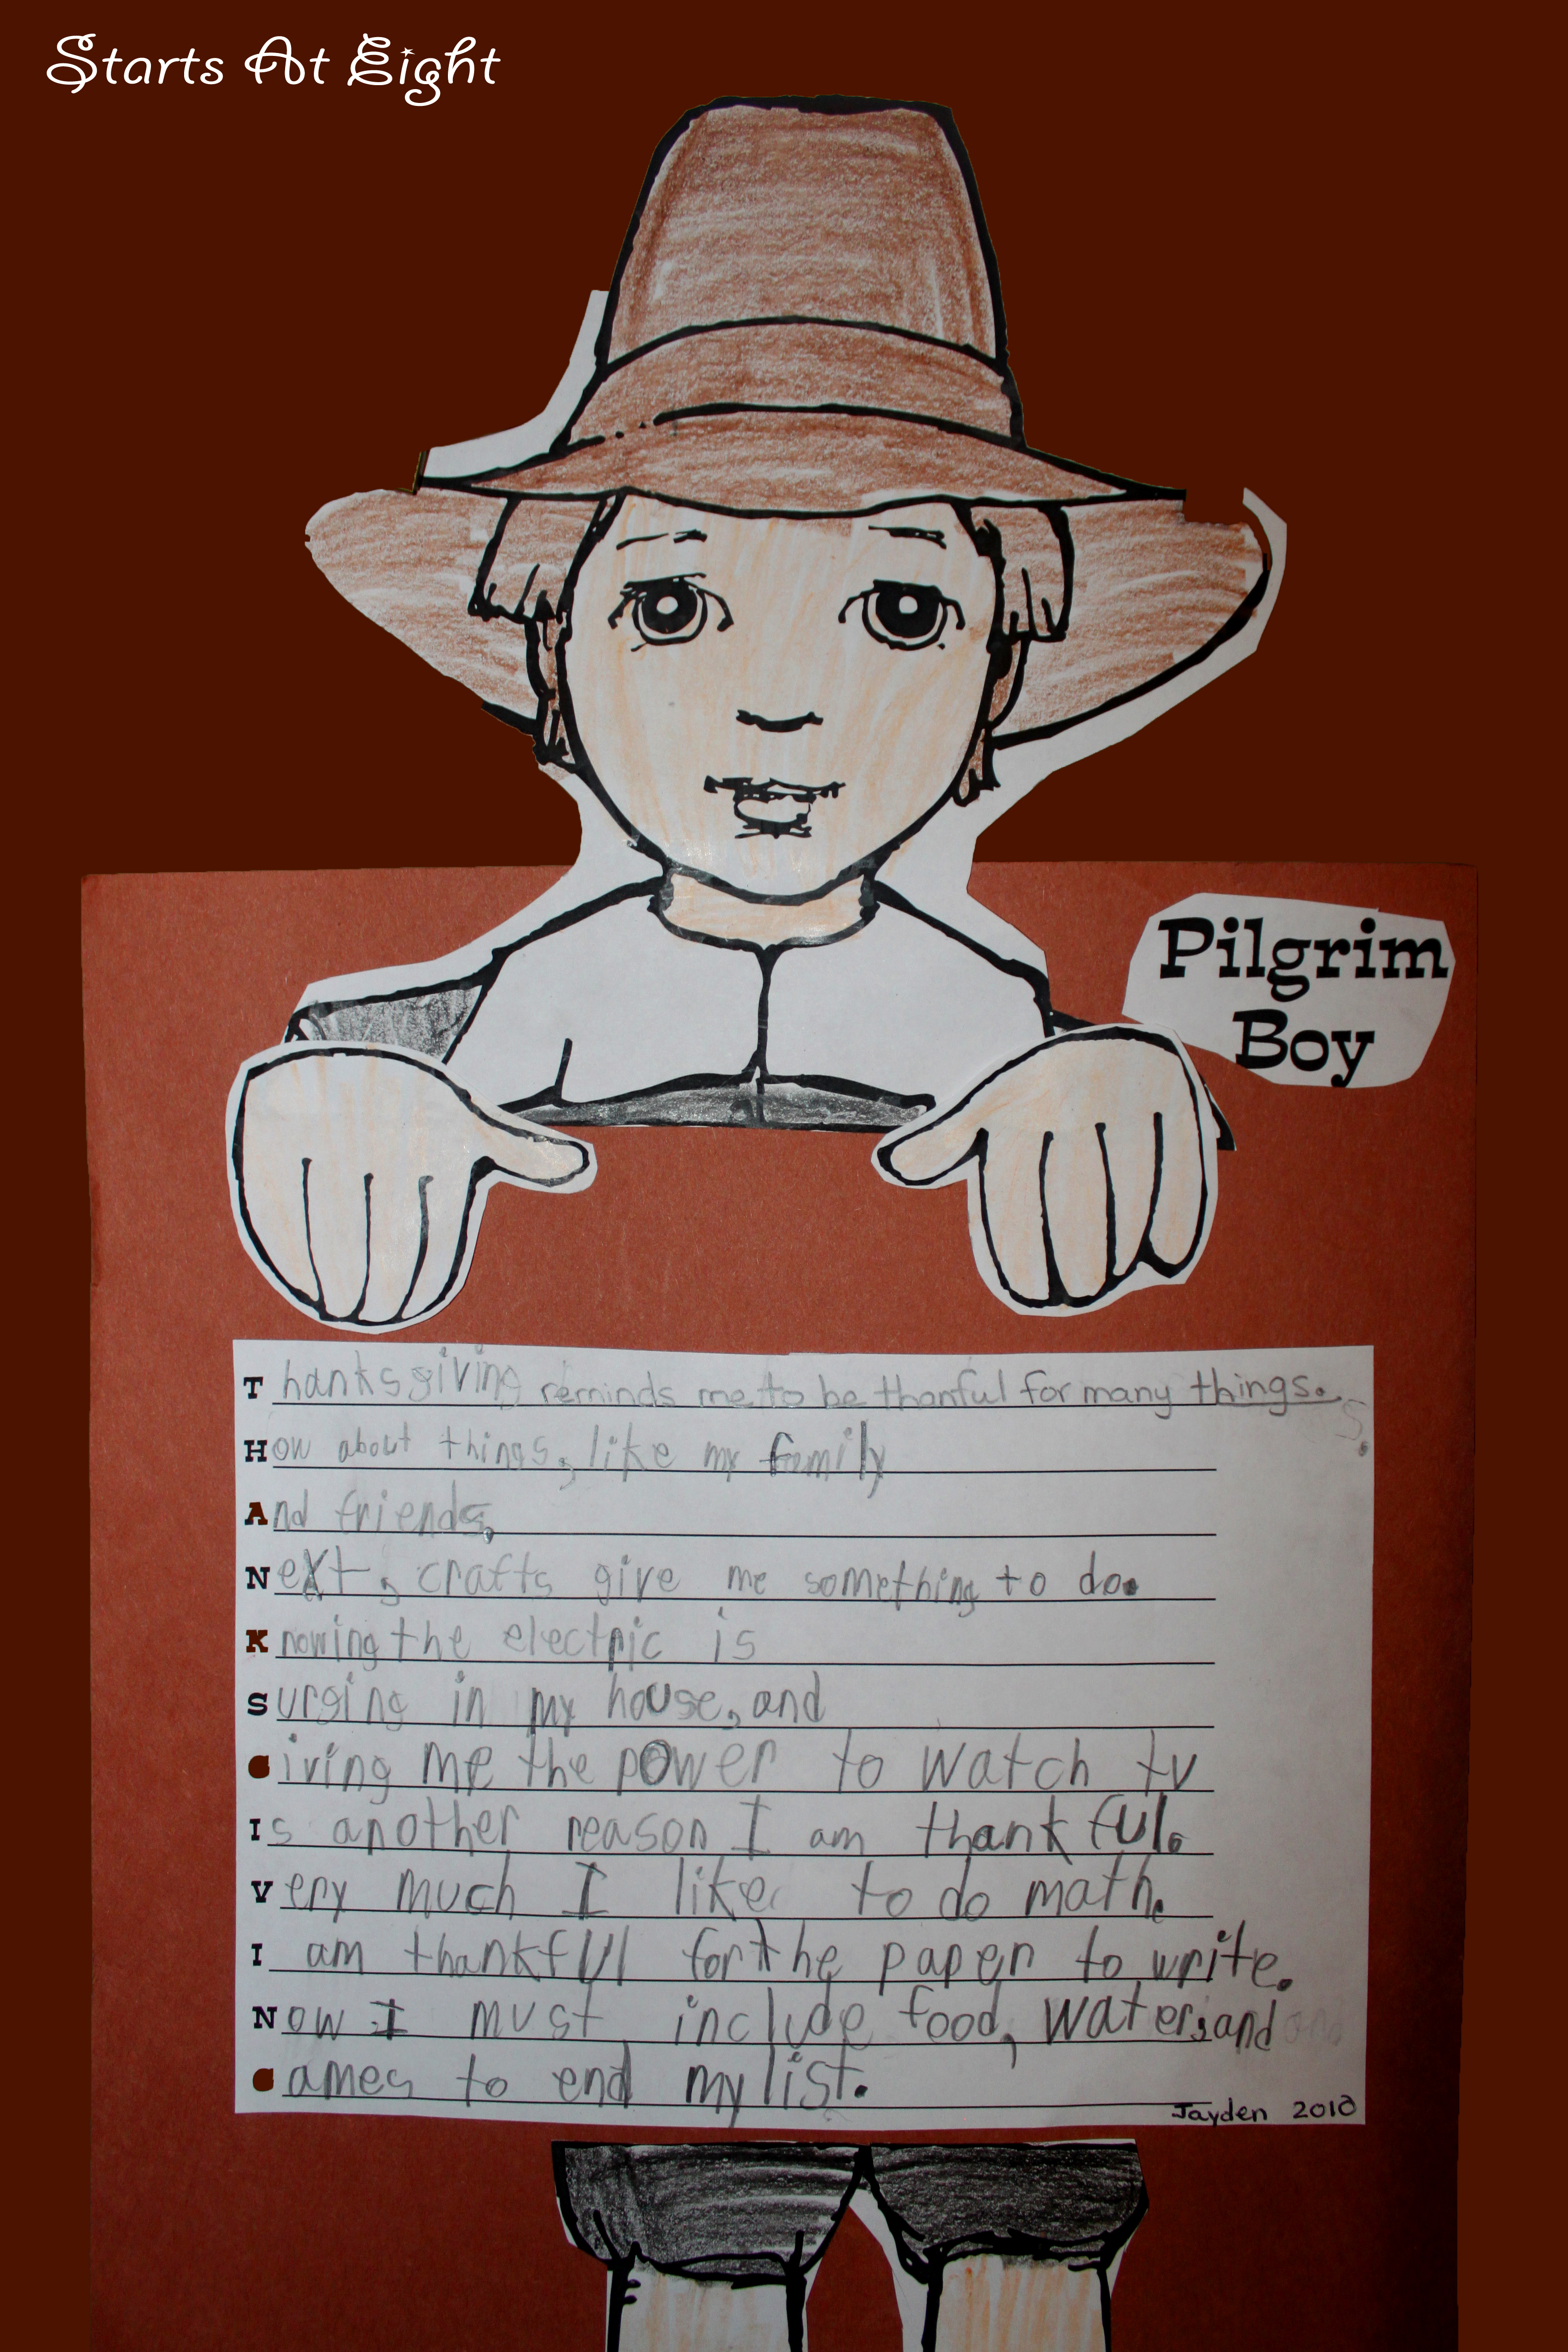 Starts At Eight
Pilgrim
Boy
Thanksgiving reminds me to be thanful for many things.
How about things, like my family
And friends,
Next, crafts give me something to do.
Knowing the electric is
Surging in my house, and
Giving me the power to watch tv
Is another reason I am thankful.
Very much I like to do math.
I am thankful for the paper to write.
Now I must include food, water, and
Games to end my list.
Jayden 2010